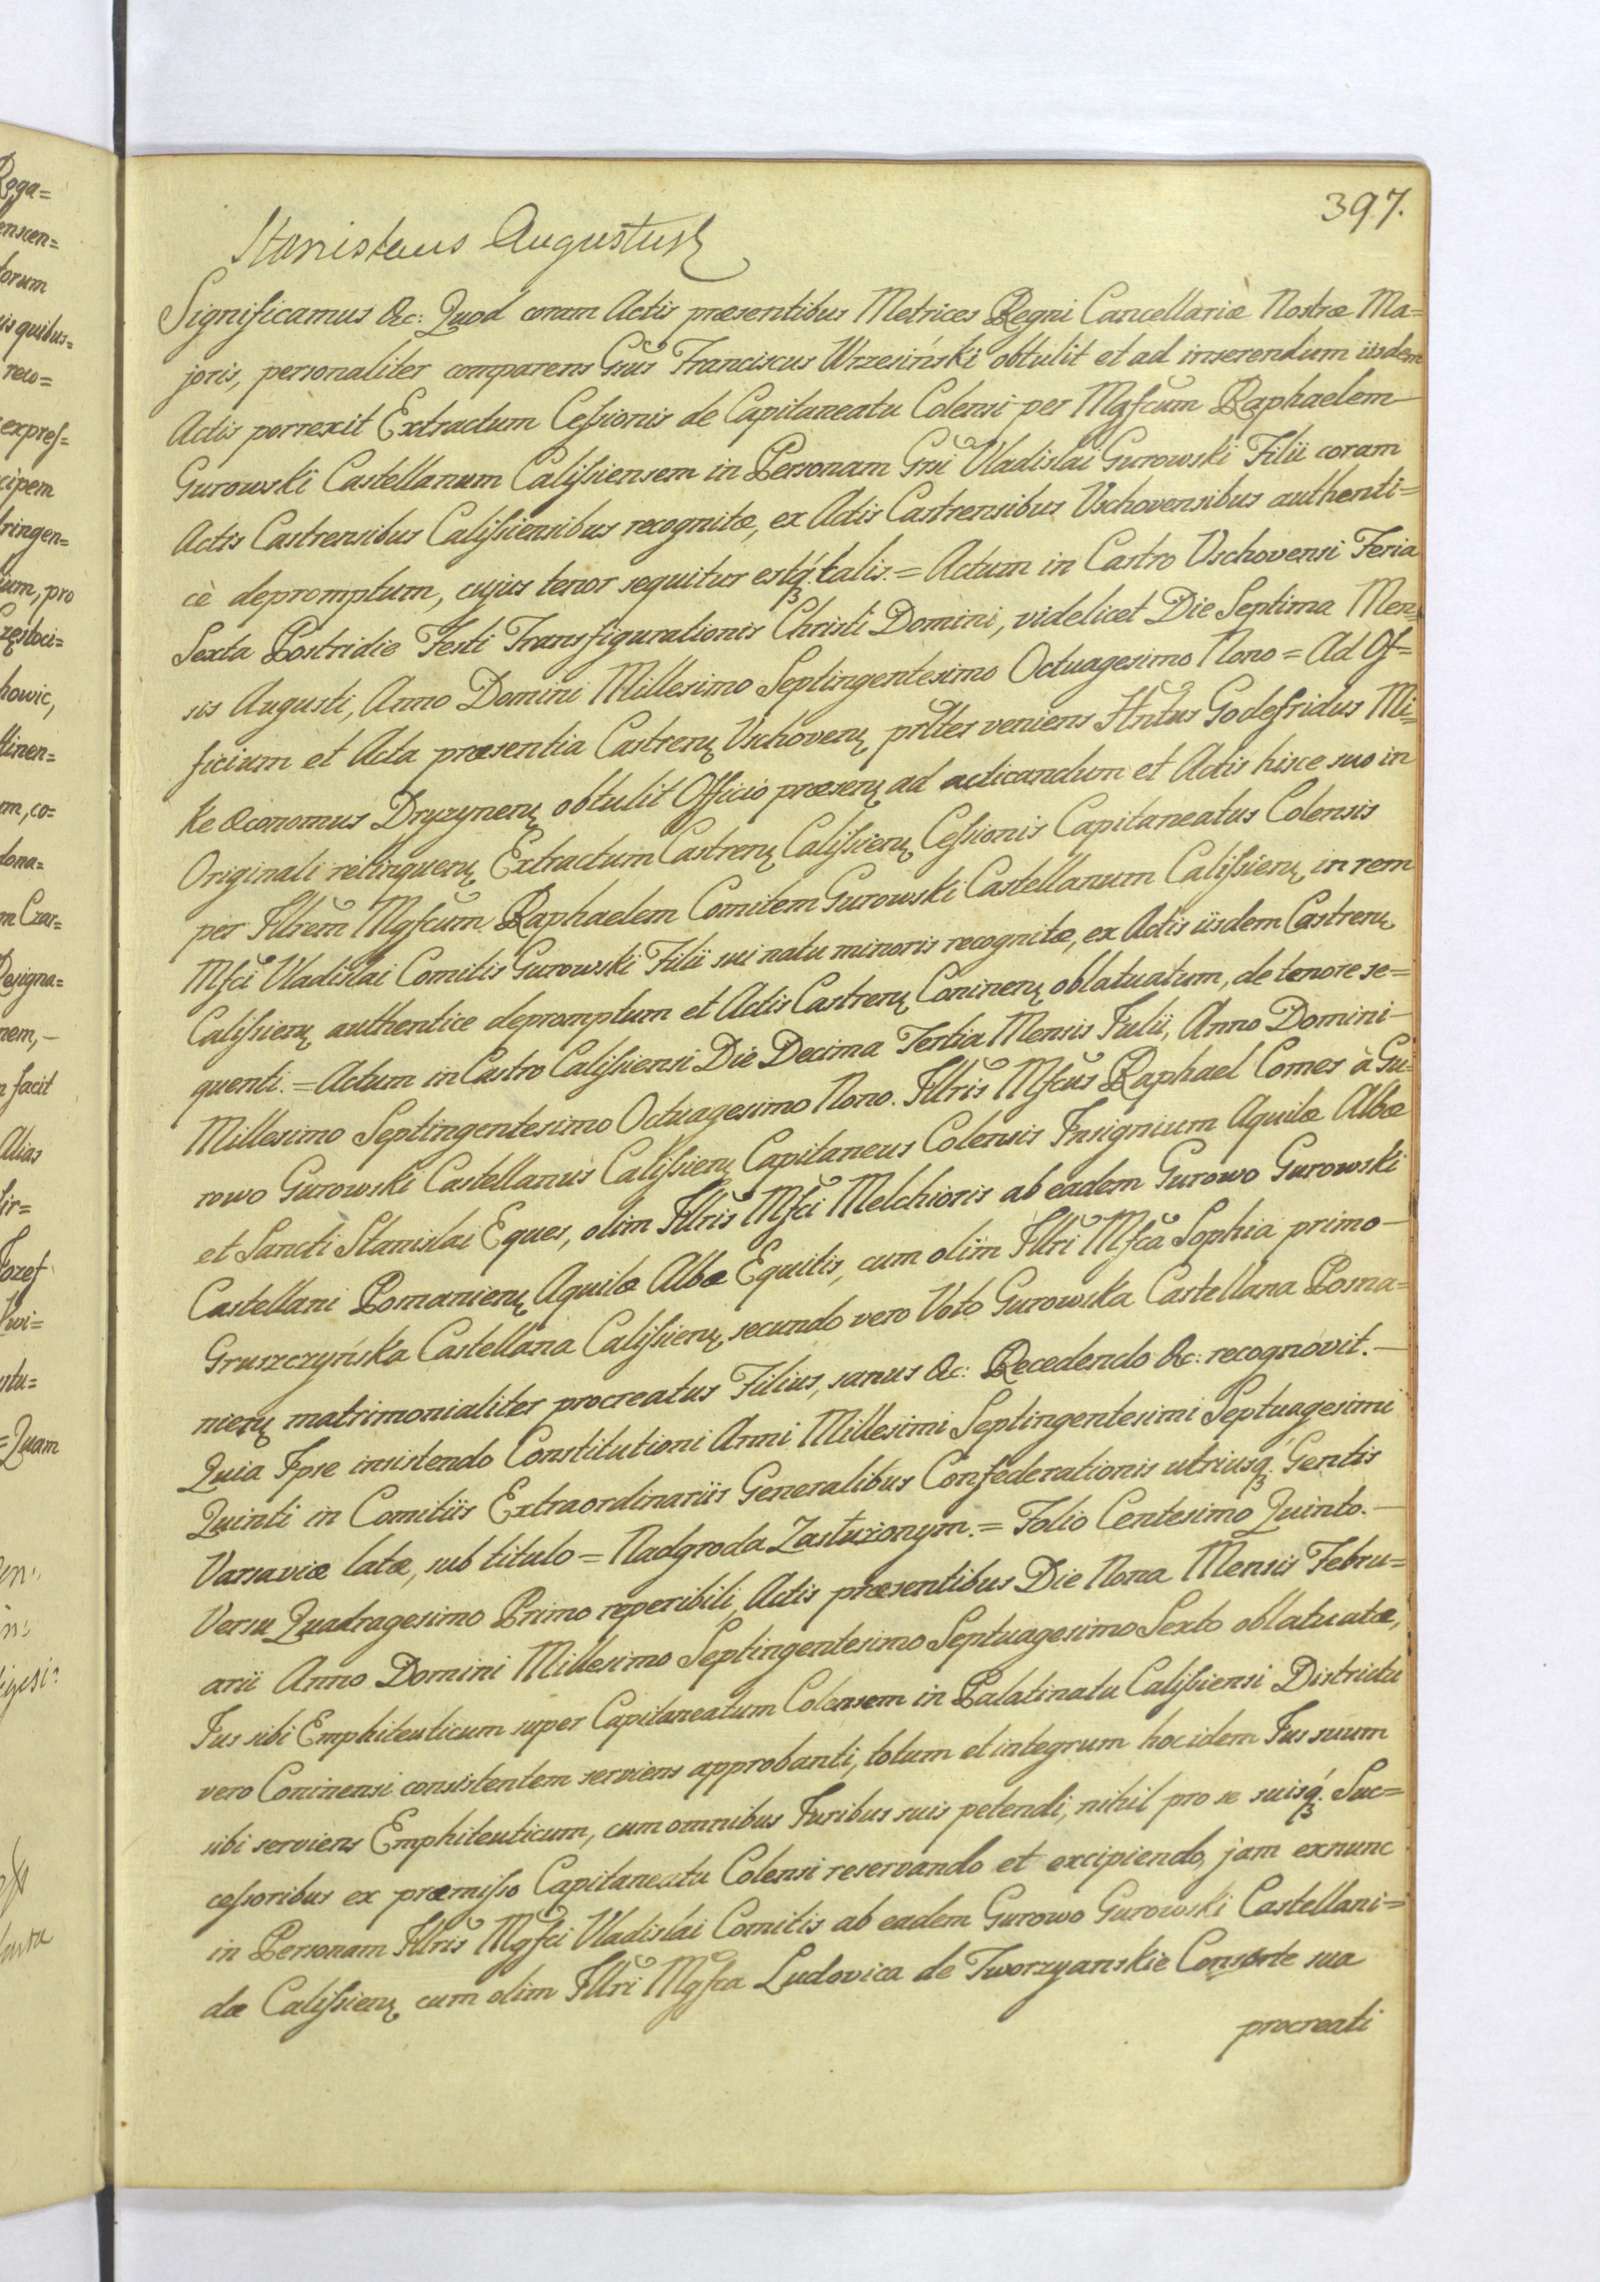 397.
Stanislaus Augustus
Significamus &c: Quod coram Actis præsentibus Metrices Regni Cancellariæ Nostræ Ma=
joris, personaliter comparens Gnus Franciscus Wrzesiński obtulit et ad inserendum iisdem
Actis porrexit Extractum Cessionis de Capitaneatu Colensi per Mgfcum Raphaelem
Gurowski Castellanum Calissiensem in Personam Gni Vladislai Gurowski Filii coram
Actis Castrensibus Calissiensibus recognitæ, ex Actis Castrensibus Vschovensibus authenti=
cè depromptum, cujus tenor sequitur estq́ talis. = Actum in Castro Vschovensi Feria
Sexta Postridie Festi Transfigurationis Christi Domini, videlicet Die Septima Men=
sis Augusti, Anno Domini Millesimo Septingentesimo Octuagesimo Nono = Ad Of=
ficium et Acta præsentia Castren Vschoven prltter veniens Hntus Godefridus Mi=
ke Œconomus Dryzynen obtulit Officio præsen ad acticandum et Actis hisce suo in
Originali relinquen Extractum Castren Calissien Cessionis Capitaneatus Colensis
per Illrem Mgfcum Raphaelem Comitem Gurowski Castellanum Calissien in rem
Mfci Vladislai Comitis Gurowski Filii sui natu minoris recognitæ, ex Actis iisdem Castren
Calissien authentice depromptum et Actis Castren Coninen oblatuatum, de tenore se=
quenti. = Actum in Castro Calissiensi Die Decima Tertia Mensis Julii, Anno Domini
Millesimo Septingentesimo Octuagesimo Nono. Illris Mfcus Raphael Comes à Gu=
rowo Gurowski Castellanus Calissien Capitaneus Colensis Insignium Aquilæ Albæ
et Sancti Stanislai Eques, olim Illris Mfci Melchioris ab eadem Gurowo Gurowski
Castellani Posnanien Aquilæ Albæ Equitis, cum olim Illri Mfca Sophia primo
Gruszczyńska Castellana Calissien, secundo vero Voto Gurowska Castellana Posna=
nien matrimonialiter procreatus Filius, sanus &c: Recedendo &c: recognovit.
Quia Ipse insistendo Constitutioni Anni Millesimi Septingentesimi Septuagesimi
Quinti in Comitiis Extraordinariis Generalibus Confederationis utriusq́ Gentis
Varsaviæ latæ, sub titulo = Nadgroda Zasłużonym. = Folio Centesimo Quinto.
Versu Quadragesimo Primo reperibili, Actis præsentibus Die Nona Mensis Febru=
arii Anno Domini Millesimo Septingentesimo Septuagesimo Sexto oblatuatæ,
Jus sibi Emphiteuticum super Capitaneatum Colensem in Palatinatu Calissiensi Districtu
vero Coninensi consistentem serviens approbanti, totum et integrum hoc idem Jus suum
sibi serviens Emphiteuticum, cum omnibus Juribus suis petendi, nihil pro se suisq́ Suc=
cessoribus ex præmisso Capitaneatu Colensi reservando et excipiendo, jam exnunc
in Personam Illris Mgfci Vladislai Comitis ab eadem Gurowo Gurowski Castellani=
dæ Calissien cum olim Illri Mgfca Ludovica de Tworzyanskie Consorte sua
procreati